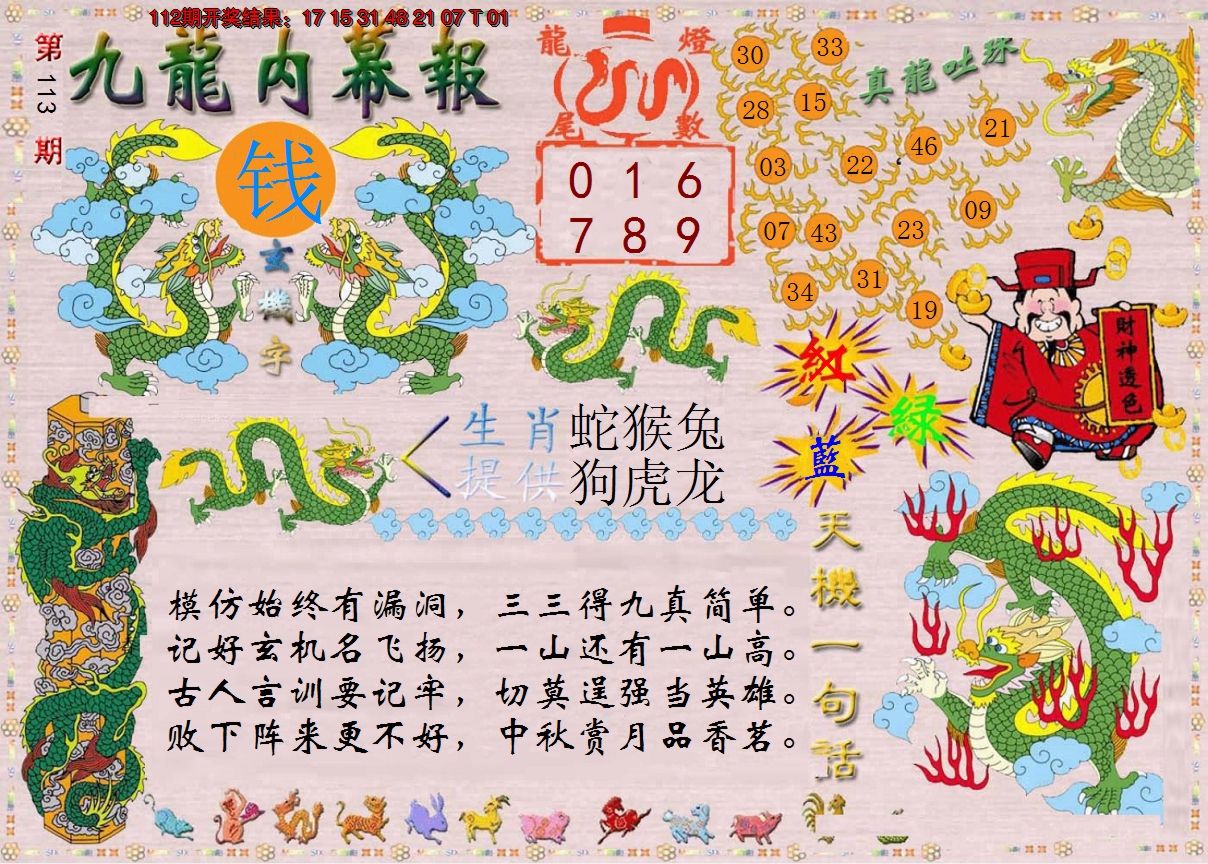 112期开奖结果：17 15 31 48 21 07 T 01
第113期
九龍内幕報
钱
玄機字
龍燈
尾數
0 1 6
7 8 9
真龍吐珠
30
33
28
15
46
21
03
22
09
07
43
23
31
34
19
財神透色
紅
綠
藍
生肖
提供
蛇猴兔
狗虎龙
模仿始终有漏洞，三三得九真简单。
记好玄机名飞扬，一山还有一山高。
古人言训要记牢，切莫逞强当英雄。
败下阵来更不好，中秋赏月品香茗。
天機一句話